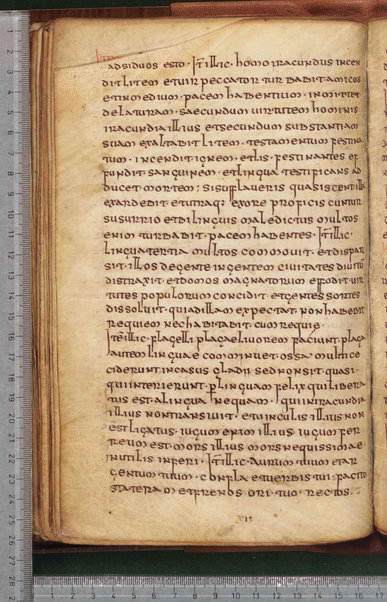 adsiduos esto. Item illic. homo iracundus incen
dit litem et uir peccator turbabit amicos
et in medium. pacem habentium. inmittet
delaturam. saecundum uirtutem hominis
iracundia illius et secundum substantiam
suam exaltabit item. testamentum festina
tum. incendit ignem. et lis. festinantes ef
fundit sanguinem. et lingua testificans ad
ducet mortem: si sufflaueris quasi scentilla
exardebit et utraq: ex ore proficiscuntur
susurrio et bilinguis maledictus multos
enim turbabit. pacem habentes. Item illic.
lingua tertia multos commouit. et dispar
sit. illos de gente in gentem ciuitates diuitu
distraxit. et domos magnatorum effodit uir
tutes populorum concidit. et gentes fortes
dissoluit. qui ad illam expectat. non habebit
requiem nec habitabit. cum requie.
Item illic. plagelli plaga liuorem faciunt. plaga
autem linguae comminuet. ossa multi ce
ciderunt in casus gladii sed non sit. quasi
qui interierunt. p linguam felix qui libera
tus est. a lingua nequam. qui in iracundia
illius non transiuit. et uinculis illius non
est ligatus. iugum enim illius. iugum fer
reum est. mors illius mors nequissima e
inutilis inferi. Item illic. aurum tuum et ar
gentum tuum. confla et uerbis tui. facito
stateram et frenos ori tuo. rectos.
XII